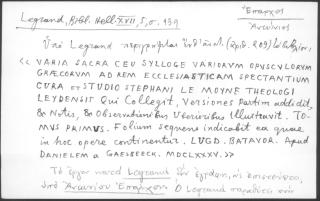 Legrand, Bibl. Hell. XVII, 5, σ. 139
Ἔπαρχος
Ἀντώνιος
Ὑπὸ Legrand περιγράφεται (ἀριθ. 209)
« VARIA SACRA CEU SYLLOGE VARIORVM OPVSCVLORVM
GRÆCORVM AD REM ECCLESIASTICAM SPECTANTIUM
CURA et STUDIO STEPHANI LE MOYNE THEOLOGI
LEYDENSIS Qui Collegit, Versiones partim addidit,
& Notis, & Observationibus Uberioribus Illustravit. TO-
MVS PRIMVS. Folium sequens indicabit ea quae
in hoc opere continentur. LVGD. BATAVOR. Apud
DANIELEM a GAESBEECK. MDCLXXXV. »
Τὸ ἔργον κατὰ Legrand
ὑπὸ Ἀντωνίου Ἐπάρχου. Ὁ Legrand